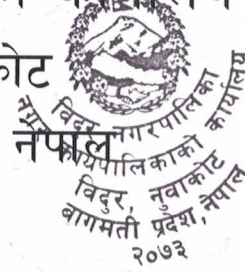 कोट
नेपाल
विदुर नगरपालिका
नगर कार्यपालिकाको कार्यालय
विदुर, नुवाकोट
बागमती प्रदेश, नेपाल
२०७३